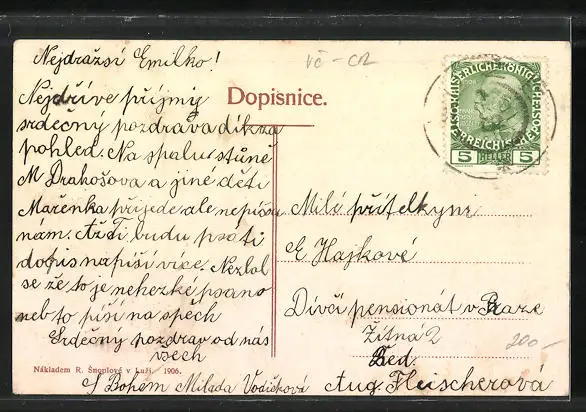 Nejdražsí Emilko!
vč - CR
Nejdříve přijmij
srdečný pozdrav a dík za
pohled. Na spalu stůně
M Drahošova a jiné děti
Mařenka přijede ale nepíšou
nám. Až Ti budu psáti
dopis napíší více. Nezlob
se že to je nehezké psano
neb to píší na spěch
Srdečný pozdrav od nás
všech
S Bohem Milada Vodičková
Dopisnice.
KAISERLICHE KÖNIGLICHE
ÖSTERREICHISCHE
5 HELLER 5
Milé přítelkyni
E Hajkové
Dívčí pensionát v Praze
Žitná 2
Řed.
Aug. Fleischerová
200-
Nákladem R. Šnoplové v Luži. 1906.